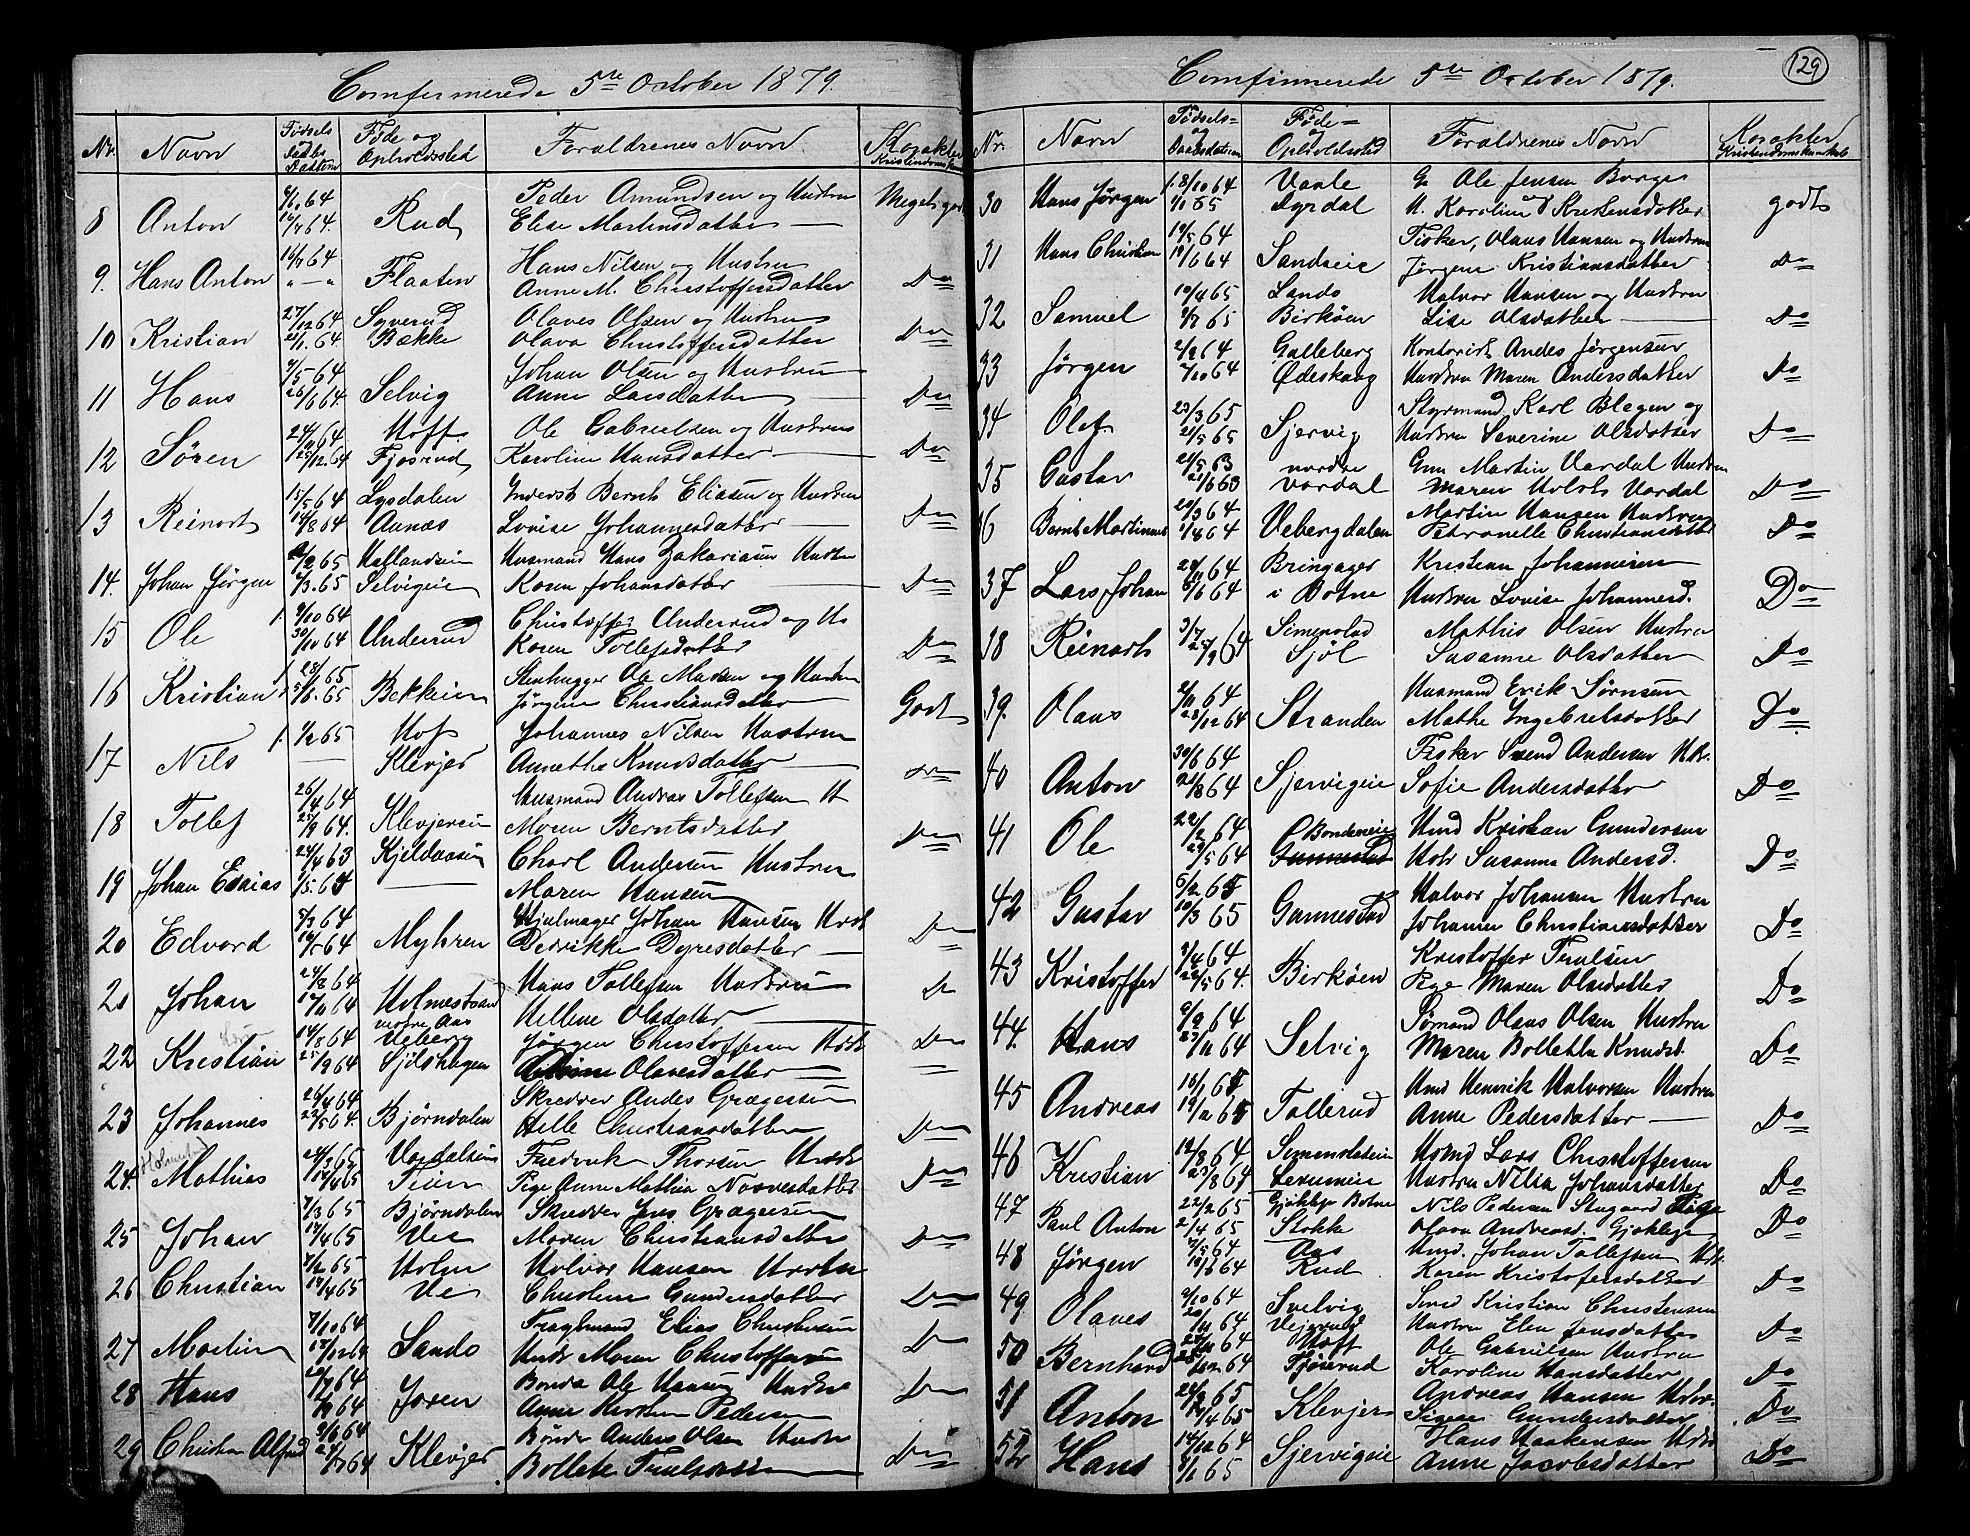 Comfirmerede 5te October 1879.
Nr. Navn Fødsels Daabs Datum Føde og Opholdssted Foraldrenes Navn Karakter Kristendoms
8 Anton 6/6 64 14/7 64. Rud Peder Amundsen og Hustru Elise Martinsdatter Meget godt
9. Hans Anton 16/7 64 "—" Flaaten Hans Nilsen og Hustru Anne M. Christoffersdatter Do
10 Kristian 27/12 64 64 Syverud Bække Olaves Olsen og Hustru Olava Christoffersdatter Do
11 Hans 7/5 64 26/6 64 Selvig Johan Olsen og Hustru Anne Larsdatter Do
12 Søren 24/9 64 25/12 64 Hoff Fjøsrud Ole Gabrielsen og Hustru Karoline Hansdatter Do
13 Reinart 15/5 64 14/8 64 Lysdalen Aanæs Inderst Bernt Eliasen og Hustru Lovise Johannesdatter Do
14. Johan Jørgen 2/2 65 /3 65 Hallandseie Selvigeie Husmand Hans Zakariasen Hustru Karen Johansdatter Do
15 Ole 1. 9/10 64 30/10 64 Underrud Christoffer Underrud og Hs Karen Tollefsdatter Do
16 Kristian 1. 28/ 65 /6. 65 Bekkeien Stenhugger Ole Madsen og Hustru Jørgine Christiansdatter Godt
17 Nils 1. 1/2 65 — Hof Klevjer Johannes Nilsen Hustru Annethe Knudsdatter Do
18 Tollef 26/4 64 25/9 64. Klevjereie Husmand Andreas Tollefsen H Maren Berntsdatter Do
19 Johan Esaias 24/4 63 /5 64 Kjeldaasen — Charl Andersen Hustru Maren Hansen
20 Edvard 5/2 64 16/5 64 Myhren Hjulmager Johan Hansen Hustr Dedrikke Dyresdatter Do
21 Johan 24/8 64 17/11 64 Holmestrand Hans Tollefsen Hustru Hellene Olsdatter Do
22 Kristian 14/8 64 25/9 64 vestre Aas Veberg Sjølshagen Jørgen Christoffersen Hustr Olavesdatter Do
23 Johannes 26/4 64 22/5 64. Bjørndalen Skredder Andes Grægersen Helle Christiansdatter Do
24. Mathias 24/2 65 /4 65 Vardalseie Teien Fredrik Thorsen Hustr Pige Anne Mathia Nosvesdatter Do
25 Johan 7/3 65 17/4 65 Bjørndalen Vee Skredder Jens Grægersen Maren Christiansdatter Do
26 Christian 7/2 65 17/4 65 Holm Ve Halvor Hansen Hustru Christine Gundersdatter Do
27 Martin 7/10 64 17/12 64 Sando Fragtmand Elias Christensen Hustr Maren Christoffersen Do
28 Hans /7 64 /9 64 Joren Bonde Ole Hansen Hustru Anne Kirstine Pedersen Do
29 Christian Alfred 2/6 64 /7 64 Klevjer Bonde Anders Olsen Hustr Bollete Trulsdatter Do
129
Comfirmerede 5te October 1879.
Nr. Navn Fødsels= og Daabsdatum Føde= og Opholdssted Foraldrenes Navn Karakter Kristendomskundskab
30 Hans Jørgen 1. 8/10 64 1/1 65 Vaale Dyrdal G. Ole Jensen Borge H. Karoline Kristensdatter godt
31 Hans Christian 19/5 64 19/6 64 Sandseie Fisker, Olaus Hansen og Hustru Jørgene Kristiansdatter Do
32 Samuel 10/4 65 /7 65 Sando Birkøen Halvor Hansen og Hustru Lise Olsdatter Do
33 Jørgen 2/9 64 /10 64 Galleberg Ødeskaug Kontorist Andes Jørgensen Hustru Maren Andersdatter Do
34 Olef 23/3 65 21/5 65 Sjervig Styrmand Karl Blegen og Hustru Severine Olsdatter Do
35 Gustav 21/5 63 21/6 63 nordre Vardal Gm Martin Vardal Hustru Maren Holst Vardal Do
36 Bernt Martinius 20/3 64 1/4 64 Vebergdalen Martin Hansen Hustru Petronelle Christiansdatter Do
37 Lars Johan 24/ 64 6/6 64 Bringager i Botne Kristian Johannesen Hustru Lovise Johannesd. Do
38 Reinart 3/7 25/9 64 Simenstad Sjøl Mathis Olsen Hustru Susanne Olsdatter Do
39. Olaus 2/11 64 23/12 64 Stranden Husmand Erik Sørnsen Mathe Ingebretsdatter Do
40 Anton 30/6 64 21/8 64 Sjervigeie Fisker Svend Andersen Hustr. Sofie Andersdatter Do
41 Ole 22/2 64 29/5 64 Bondeneie Gunnestad Hmd Kristian Gundersen Hstr Susanna Andersd. Do
42 Gustav 5/2 65 19/3 65 Gunnestad Halvor Johansen Hustru Johanne Christiansdatter Do
43 Kristoffer 2/4 64 22/5 64. Birkøen Kristoffer Trulsen Pige Maren Olsdatter Do
44. Hans 9/9 64 27/11 64 Selvig Sømand Olaus Olsen Hustru Maren Bolletta Knudsd. Do
45 Andreas 16/1 65 19/2 65 Tollerud Hmd Henrik Halvorsen Hustru Anne Pedersdatter Do
46 Kristian 12/8 64 23/8 64 Simenstadeie Hsmd Lars Christoffersen Hustru Nilia Johansdatter Do
47 Paul Anton 22/2 65 2/4 65 Gjøklep Botne Stokke Nils Pedersen Stugaard Pige Olava Andreasd. Gjøklep Do
48 Jørgen 7/5 64 19/6 64 Aas Rud Hmd. Johan Tollefsen Hstr. Karen Kristofersdatter Do
49 Olaves 2/10 64 20/11 64 Svelvig Vejerud Smed Kristian Christensen Hustru Elen Jensdatter Do
50 Bernhard 25/11 64 25/12 64 Hoft Fjøsrud Ole Gabrielsen Hustru Karoline Hansdatter Do
51 Anton 24/2 65 17/4 65 Klevjer Andreas Hansen Hstr. Sigrie Gundersdatter Do
52 Hans 14/12 64 /1 65 Sjervigeie Hans Haakensen Hstr Anne Jacobsdatter Do